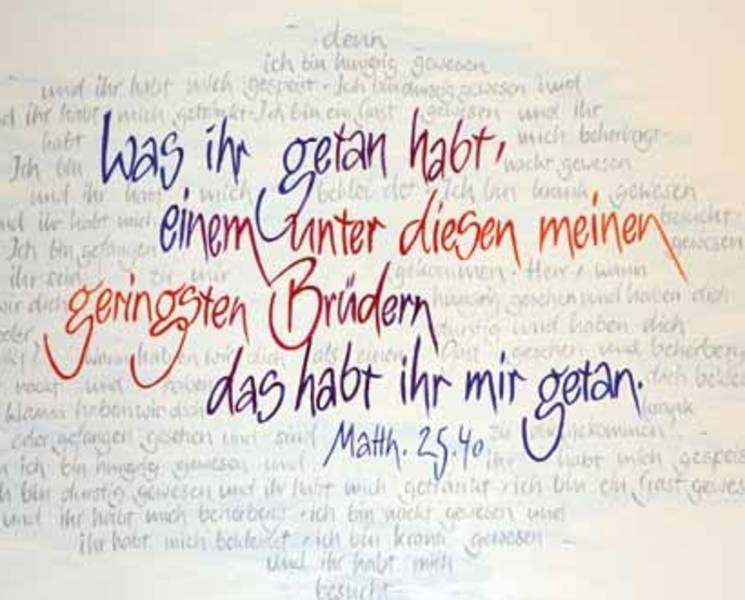 denn
ich bin hungrig gewesen
und ihr habt mich gespeist · Ich bin durstig gewesen und
ihr habt mich getränkt · Ich bin ein Gast gewesen und ihr
habt mich beherbergt ·
Was ihr getan habt,
Ich bin nackt gewesen
und ihr habt mich bekleidet · Ich bin krank gewesen
einem unter diesen meinen
und ihr habt mich besucht ·
Ich bin gefangen gewesen
ihr seid zu mir gekommen · Herr, wann
geringsten Brüdern
wir dich hungrig gesehen und haben dich
oder durstig und haben dich
Wann haben wir dich als einen Gast gesehen und beherberg
nackt und haben dich beklei
das habt ihr mir getan.
Wann haben wir dich krank
oder gefangen gesehen und sind zu dir gekommen
Matth. 25.40
ich bin hungrig gewesen und ihr habt mich gespeis
bin durstig gewesen und ihr habt mich getränkt · ich bin ein Gast gewes
und ihr habt mich beherbergt · ich bin nackt gewesen und
ihr habt mich bekleidet · ich bin krank gewesen
und ihr habt mich
besucht